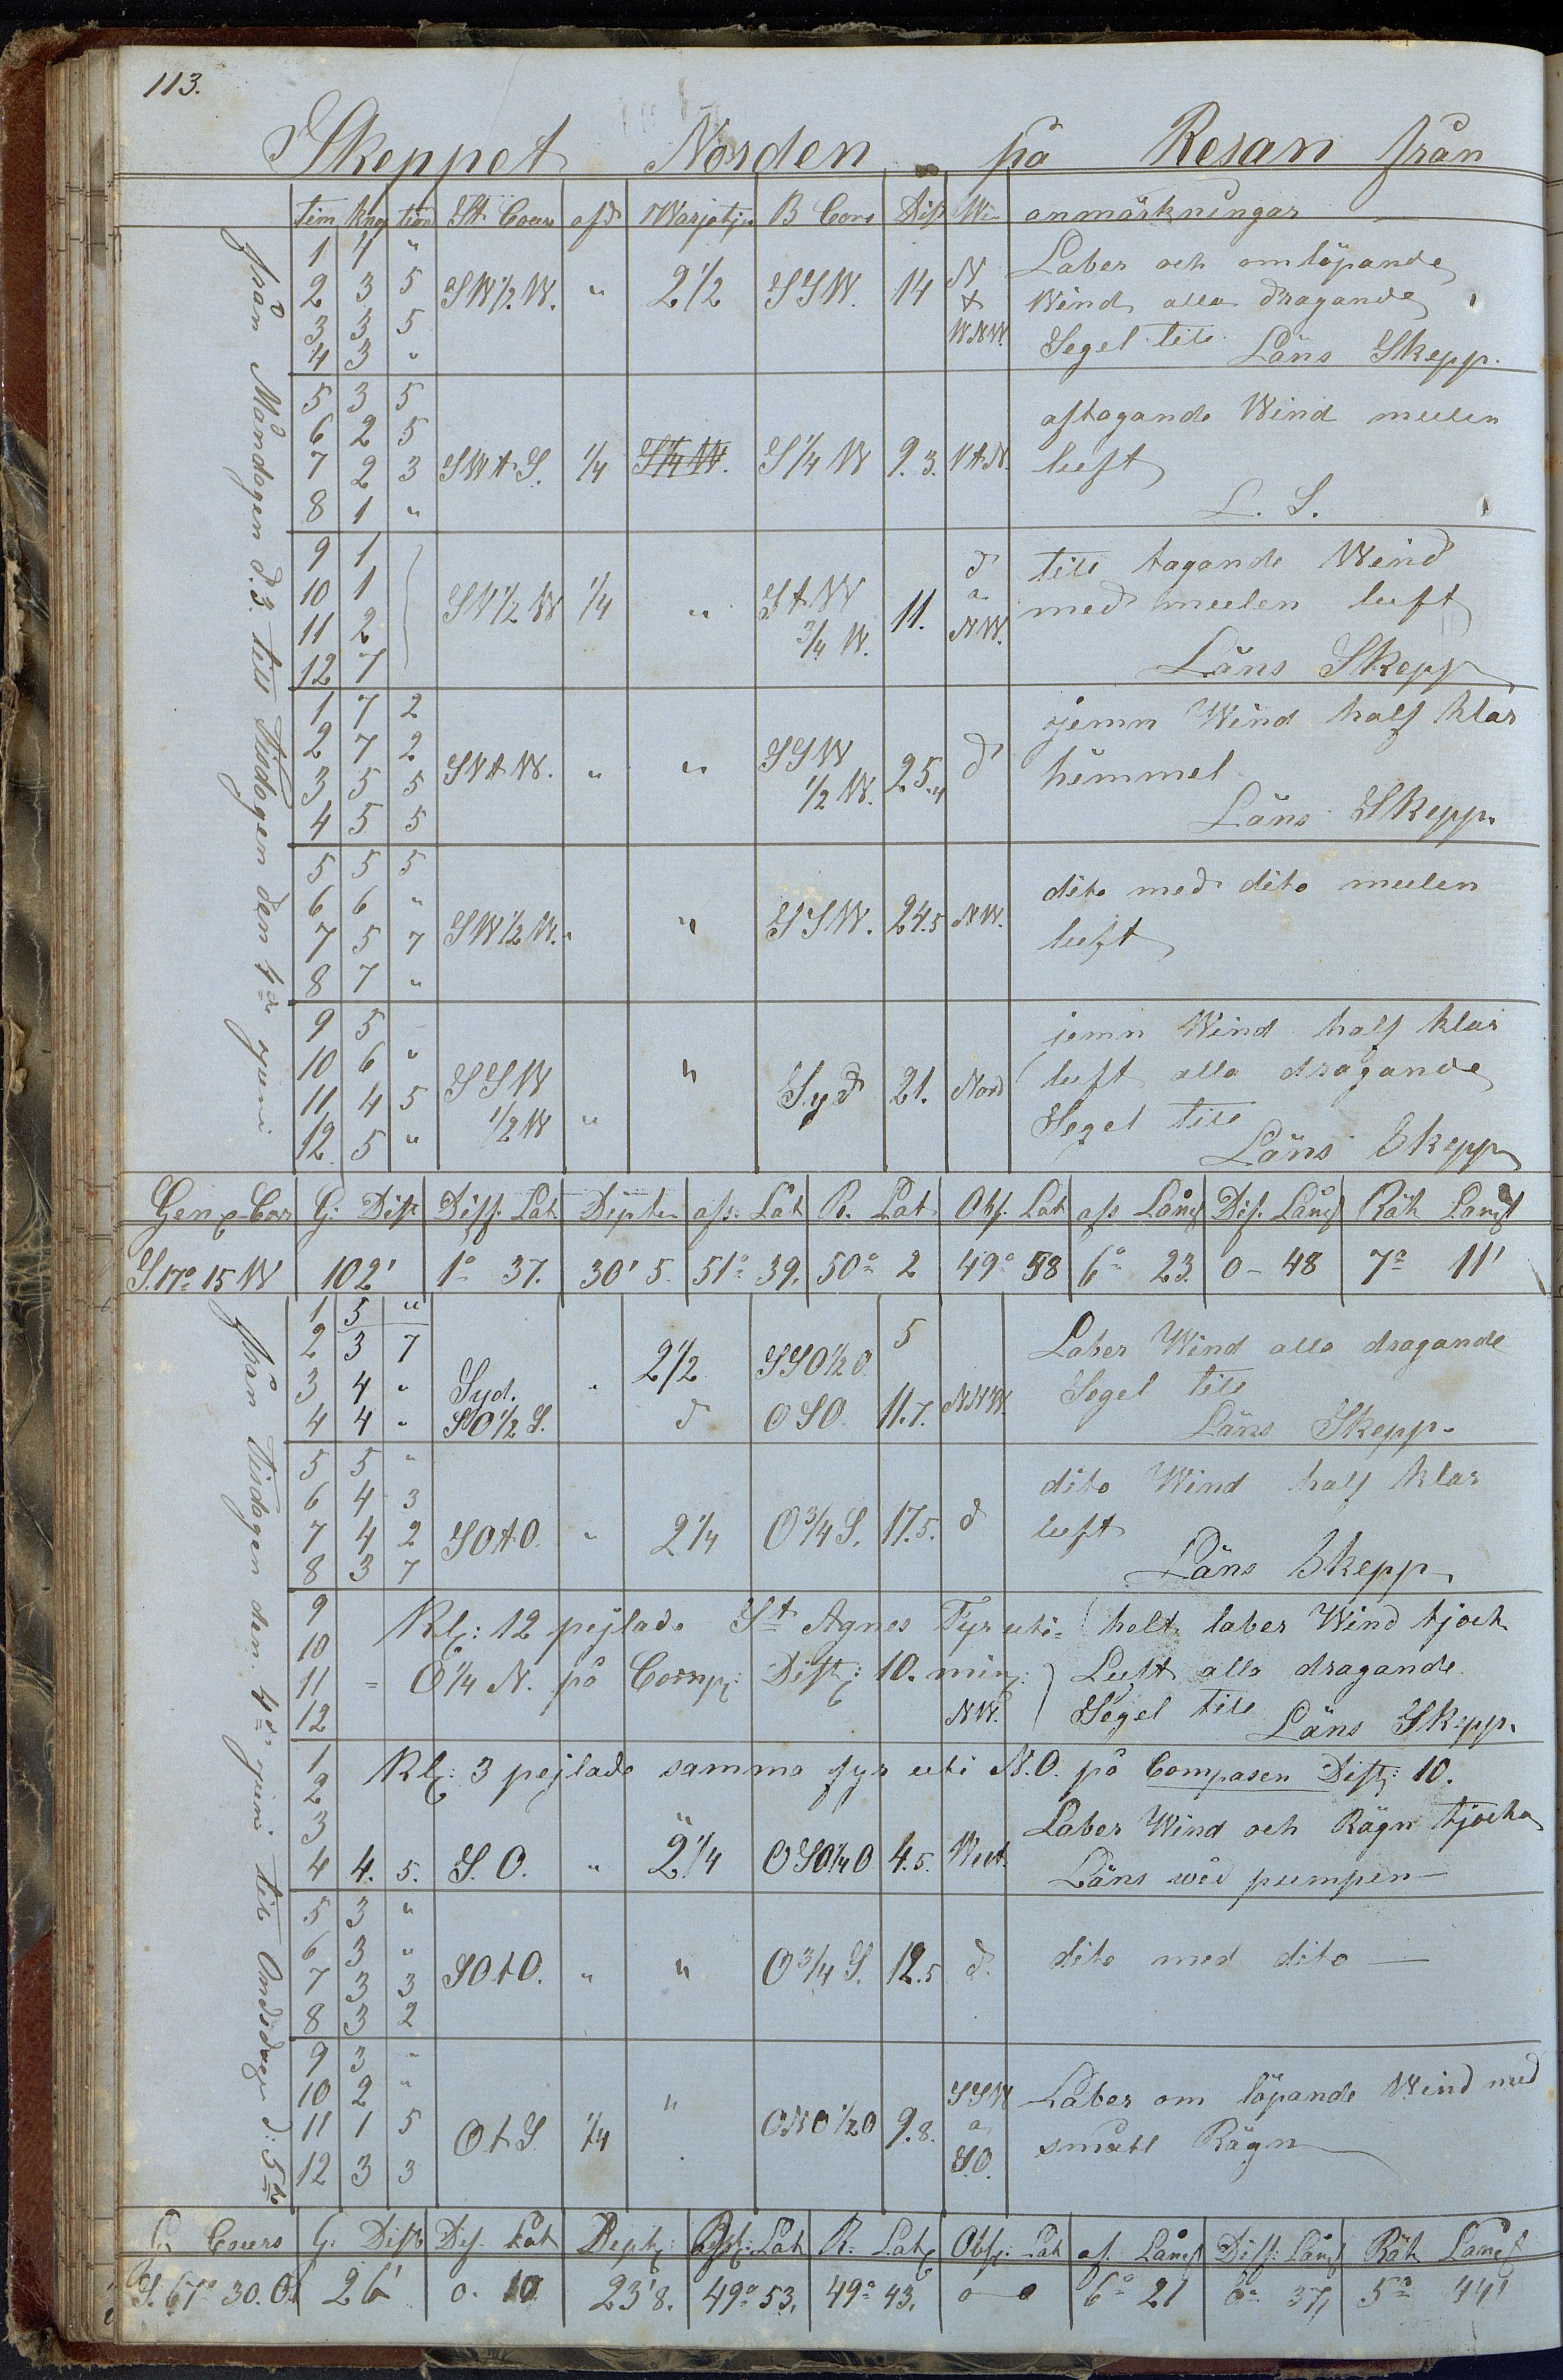 113.
Skeppet Norden på Resan från
tim kno tion St Cours afd Warjatjn B Cors Dist Wi anmärkningar
från Mandagen d. 3. till Tisdagen den 4de juni
1 4 "
2 3 5 SW 1/2 W. " 2 1/2 SSW. 14 N Laber och omlöpande
3 3 5 t Wind alla dragande
4 3 " WNW. Segel till Läns Skepp.
5 3 5
6 2 5 aftagande Wind mulen
7 2 3 SW t S. 1/4 S 1/4 W. S 1/4 W 9.3. V t N. luft
8 1 " L. S.
9 1 d till tagande Wind
10 1 SV 1/2 W 1/4 " S t W 11. a med mulen luft
11 2 3/4 W. NW.
12 7 Läns Skepp
1 7 2 jemn Wind half klar
2 7 2 SV t W. " " SSW 25.4 d himmel
3 5 5 1/2 W.
4 5 5 Läns Skepp.
5 5 5 dito med dito mulen
6 6 "
7 5 7 SW 1/2 W. " " SSW. 24.5 NW. luft
8 7 "
9 5 - jemn Wind half klar
10 6 " SSW " Syd 21. Nord luft alla dragande
11 4 5 1/2 W " Segel till
12 5 " Läns Skepp
Gen Cor G: Dist Diff. Lat Dept. aff. Lat R. Lat Obs. Lat aff Läng Dif. Läng Räk Langt
S. 17° 15 W 102' 1° 37. 30' 5. 51° 39. 50° 2 49° 58 6° 23. 0 - 48 7° 11'
från Tisdagen den 4de juni till Onsdagen d: 5te
1 5 "
2 3 7 2 1/2 SSO 1/2 O 5 Laber Wind alla dragande
3 4 " Syd. " NNW. Segel till
4 4 " SO 1/2 S. d OSO. 11.7. Läns Skepp.
5 5 "
6 4 3 dito Wind half klar
7 4 2 SO t O. " 2 1/4 O 3/4 S. 17.5. d luft
8 3 7 Läns Skepp
9 Kl: 12 pejlade St Agnes Fyr uti= helt laber Wind tjock
10
11 = O 1/4 N. på Comp: Dist: 10. min: Luft alla dragande
12 NW. Segel till Läns Skepp.
1 Kl: 3 pejlade samma fyr uti N.O. på Compasen Dist: 10.
2
3 Laber Wind och Rägn tjocka
4 4. 5. S. O. " 2 1/4 OSO 1/4 O 4.5. West. Läns wid pumpen
5 3 "
6 3 "
7 3 3 SO t O. " " O 3/4 S. 12.5 d. dito med dito
8 3 2
9 3 "
10 2 " " SSW Laber om löpande Wind med
11 1 5 O t S. 1/4 ONO 1/2 O 9.8. a smått Rägn
12 3 3 S.O.
G. Cours G: Dist Dif. Lat Dept: Aff: Lat R. Lat Obs: Lat af. Läng Diff: Läng Räk Langt
S. 67° 30. O. 26' 0. 10 23'8. 49° 53. 49° 43. 0 0 6° 21 0° 37, 5° 44'